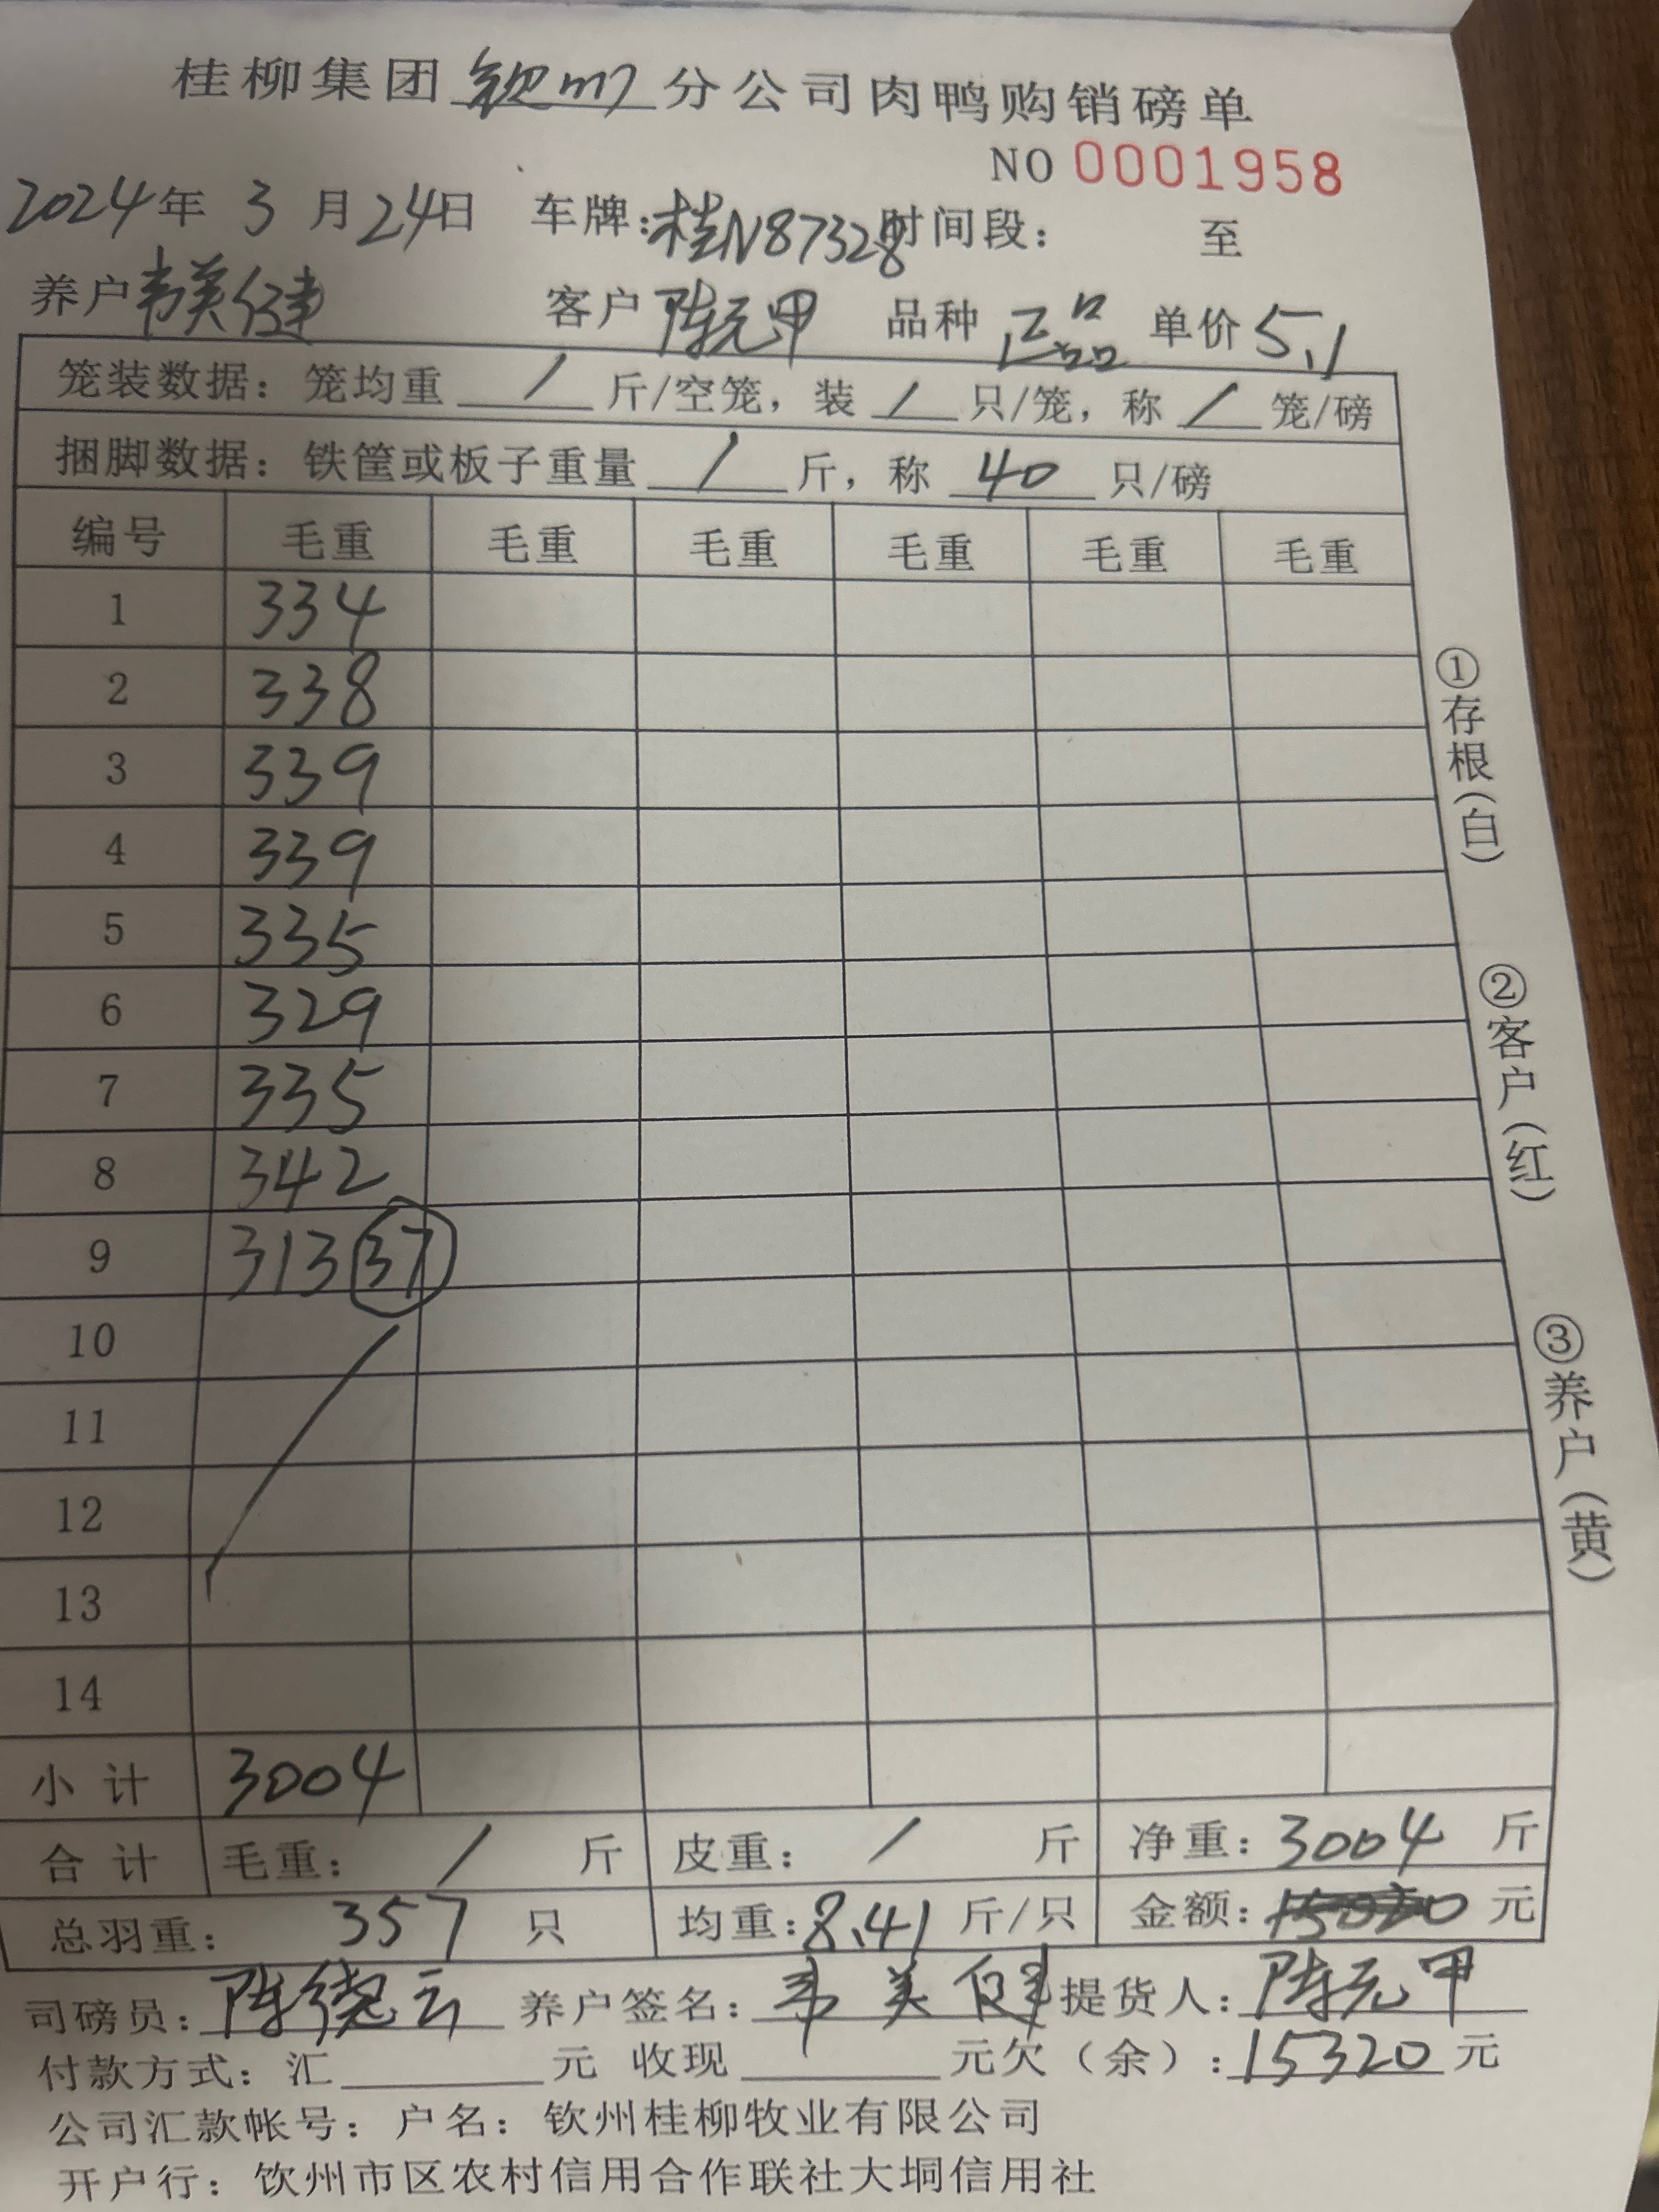 桂柳集团钦州分公司肉鸭购销磅单
NO 0001958
2024年 3 月 24日 车牌:桂N87328时间段: 至
养户韦美健 客户 陈元甲 品种 正品 单价 5.1
笼装数据: 笼均重 / 斤/空笼, 装 / 只/笼, 称 / 笼/磅
捆脚数据: 铁筐或板子重量 / 斤, 称 40 只/磅
编号 毛重 毛重 毛重 毛重 毛重 毛重
1 334
2 338
3 339
4 339
5 335
6 329
7 335
8 342
9 313 37
10
11
12
13
14
小 计 3004
合 计 毛重: / 斤 皮重: / 斤 净重: 3004 斤
总羽重: 357 只 均重: 8.41 斤/只 金额: 元
司磅员: 陈绕云 养户签名: 韦美健 提货人: 陈元甲
付款方式: 汇 元 收现 元欠(余): 15320 元
公司汇款帐号: 户名: 钦州桂柳牧业有限公司
开户行: 钦州市区农村信用合作联社大垌信用社
①存根(白)
②客户(红)
③养户(黄)